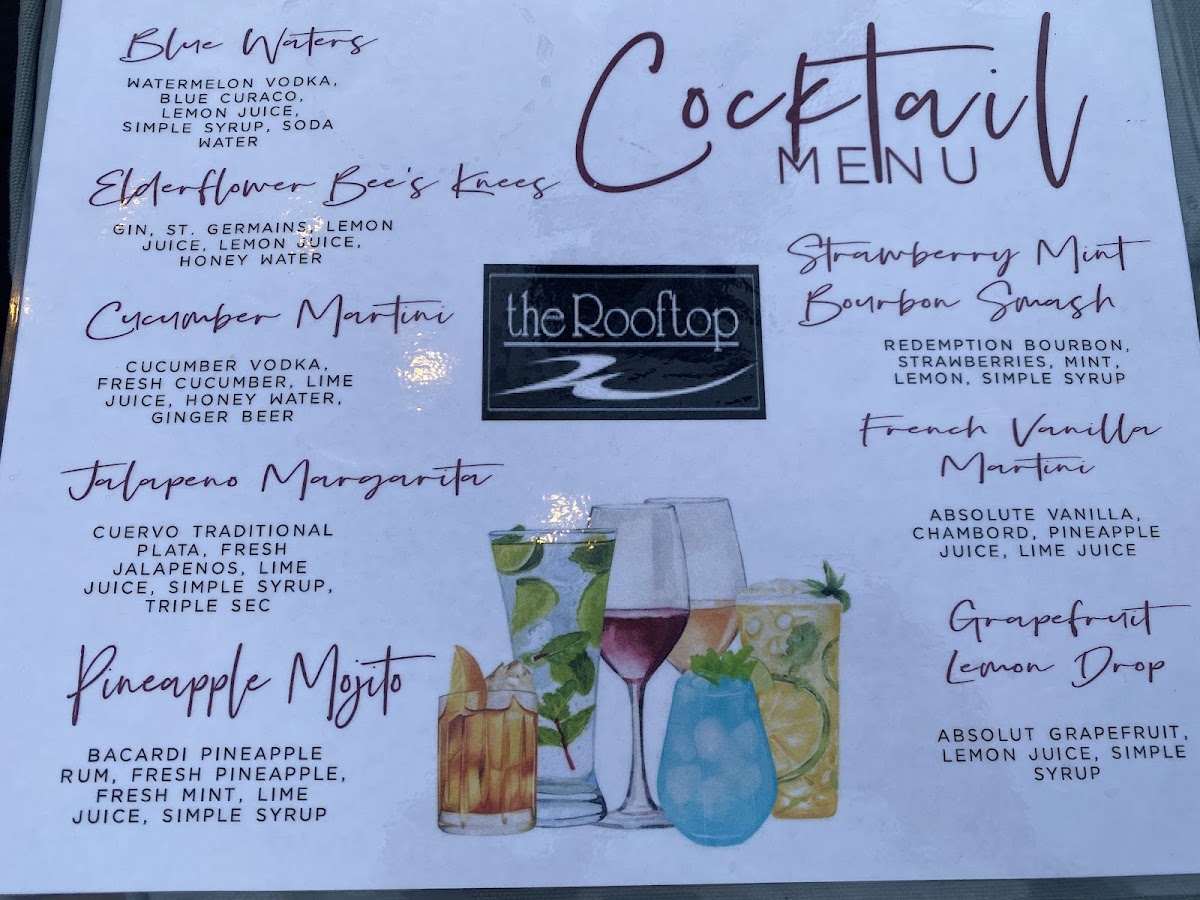 Cocktail
MENU
Blue Waters
WATERMELON VODKA,
BLUE CURACO,
LEMON JUICE,
SIMPLE SYRUP, SODA
WATER
Elderflower Bee's Knees
GIN, ST. GERMAINS, LEMON
JUICE, LEMON JUICE,
HONEY WATER
Cucumber Martini
CUCUMBER VODKA,
FRESH CUCUMBER, LIME
JUICE, HONEY WATER,
GINGER BEER
Jalapeno Margarita
CUERVO TRADITIONAL
PLATA, FRESH
JALAPENOS, LIME
JUICE, SIMPLE SYRUP,
TRIPLE SEC
Pineapple Mojito
BACARDI PINEAPPLE
RUM, FRESH PINEAPPLE,
FRESH MINT, LIME
JUICE, SIMPLE SYRUP
the Rooftop
Strawberry Mint
Bourbon Smash
REDEMPTION BOURBON,
STRAWBERRIES, MINT,
LEMON, SIMPLE SYRUP
French Vanilla
Martini
ABSOLUTE VANILLA,
CHAMBORD, PINEAPPLE
JUICE, LIME JUICE
Grapefruit
Lemon Drop
ABSOLUT GRAPEFRUIT,
LEMON JUICE, SIMPLE
SYRUP